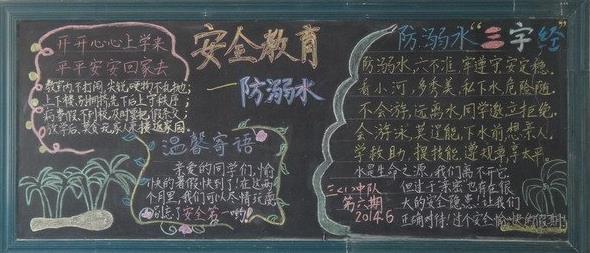 开开心心上学来
平平安安回家去
教室内不打闹,尖锐,硬物不乱抛;
上下楼,别拥挤,先下后上守秩序;
病看假,不到校,及时要把假条交;
放学后,莫贪玩,家人最接返家园
安全教育
—防溺水
温馨寄语
亲爱的同学们,愉
快的暑假快到了!在这两
个月里,我们可以尽情玩滚
别忘了安全第一哟!
防溺水“三字经”
防溺水,六不准,牢遵守,安定稳。
看小河,多秀美,私下水,危险随。
不会游,远离水,同学邀,立拒绝。
会游泳,莫逞能,下水前,想亲人。
学救助,提技能,遵规章,享太平。
水是生命之源,我们离不开它。
但过于亲密也存在很
大的安全隐患!让我们
正确对待!过个安全愉快的假期!
三(2)中队
第六期
2014.5